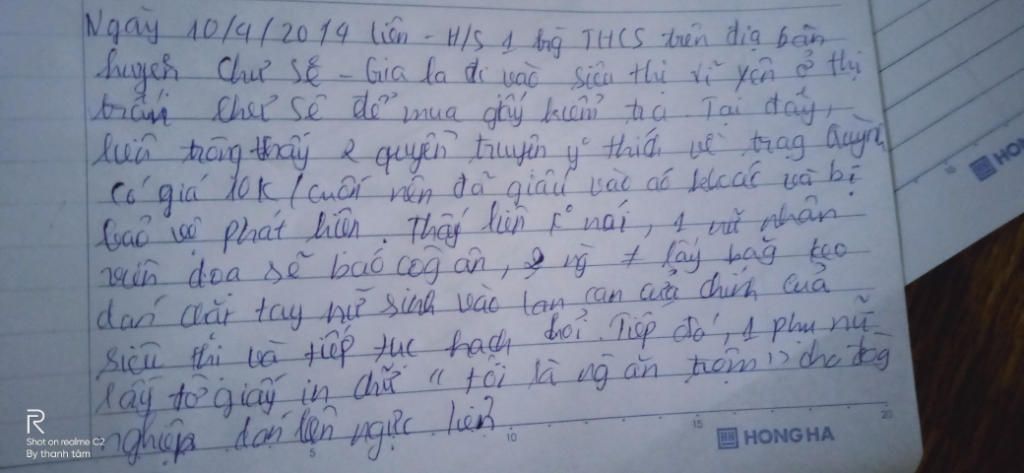 Ngày 10/4/2014 liên - H/S 1 trg THCS trên địa bàn
huyện Chư Sê - Gia la đi vào siêu thị vĩ yên ở thị
trấn Chư Sê để mua giấy kiểm tra. Tại đấy,
liên trông thấy 2 quyển truyện yº thích về trag Quỳnh
có giá 10K/cuốn nên đã giấu vào áo khoác và bị
bảo vệ phát hiện. Thấy liên kº nói, 1 nữ nhân
viên dọa sẽ báo côg an, 2 ng ≠ lấy băg keo
dán chặt tay nữ sinh vào lan can cửa chính của
siêu thị và tiếp tục hạch hỏi. Tiếp đó, 1 phụ nữ
lấy tờ giấy in chữ " tôi là ng ăn trộm " cho đồg
nghiệp dán lên ngực liên
HONG HA
HONG
5 10 15 20
R
Shot on realme C2
By thanh tâm